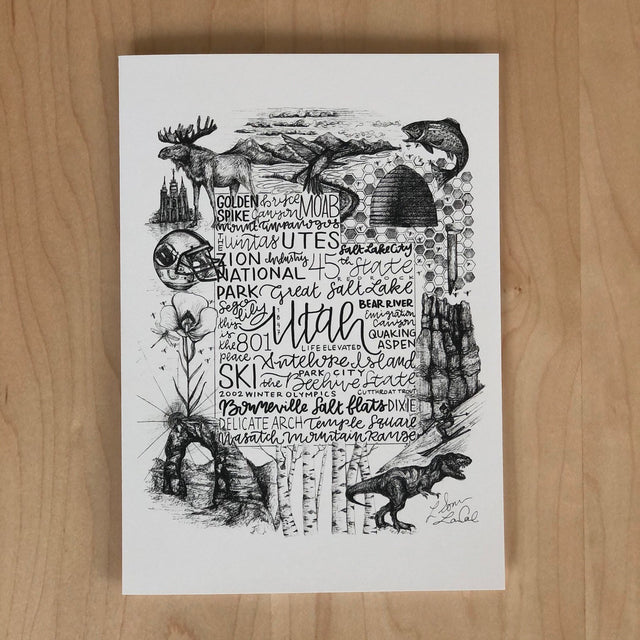 GOLDEN SPIKE Bryce Canyon MOAB
Mount Timpanogos
THE Uintas UTES Salt Lake City
ZION Industry 45th State
NATIONAL
PARK Great Salt Lake
Sego Lily BEAR RIVER
this is the place 801 Utah Emigration Canyon
LIFE ELEVATED QUAKING ASPEN
Antelope Island
SKI PARK CITY
the Beehive State
2002 WINTER OLYMPICS CUTTHROAT TROUT
Bonneville Salt flats DIXIE
DELICATE ARCH Temple Square
Wasatch Mountain Range